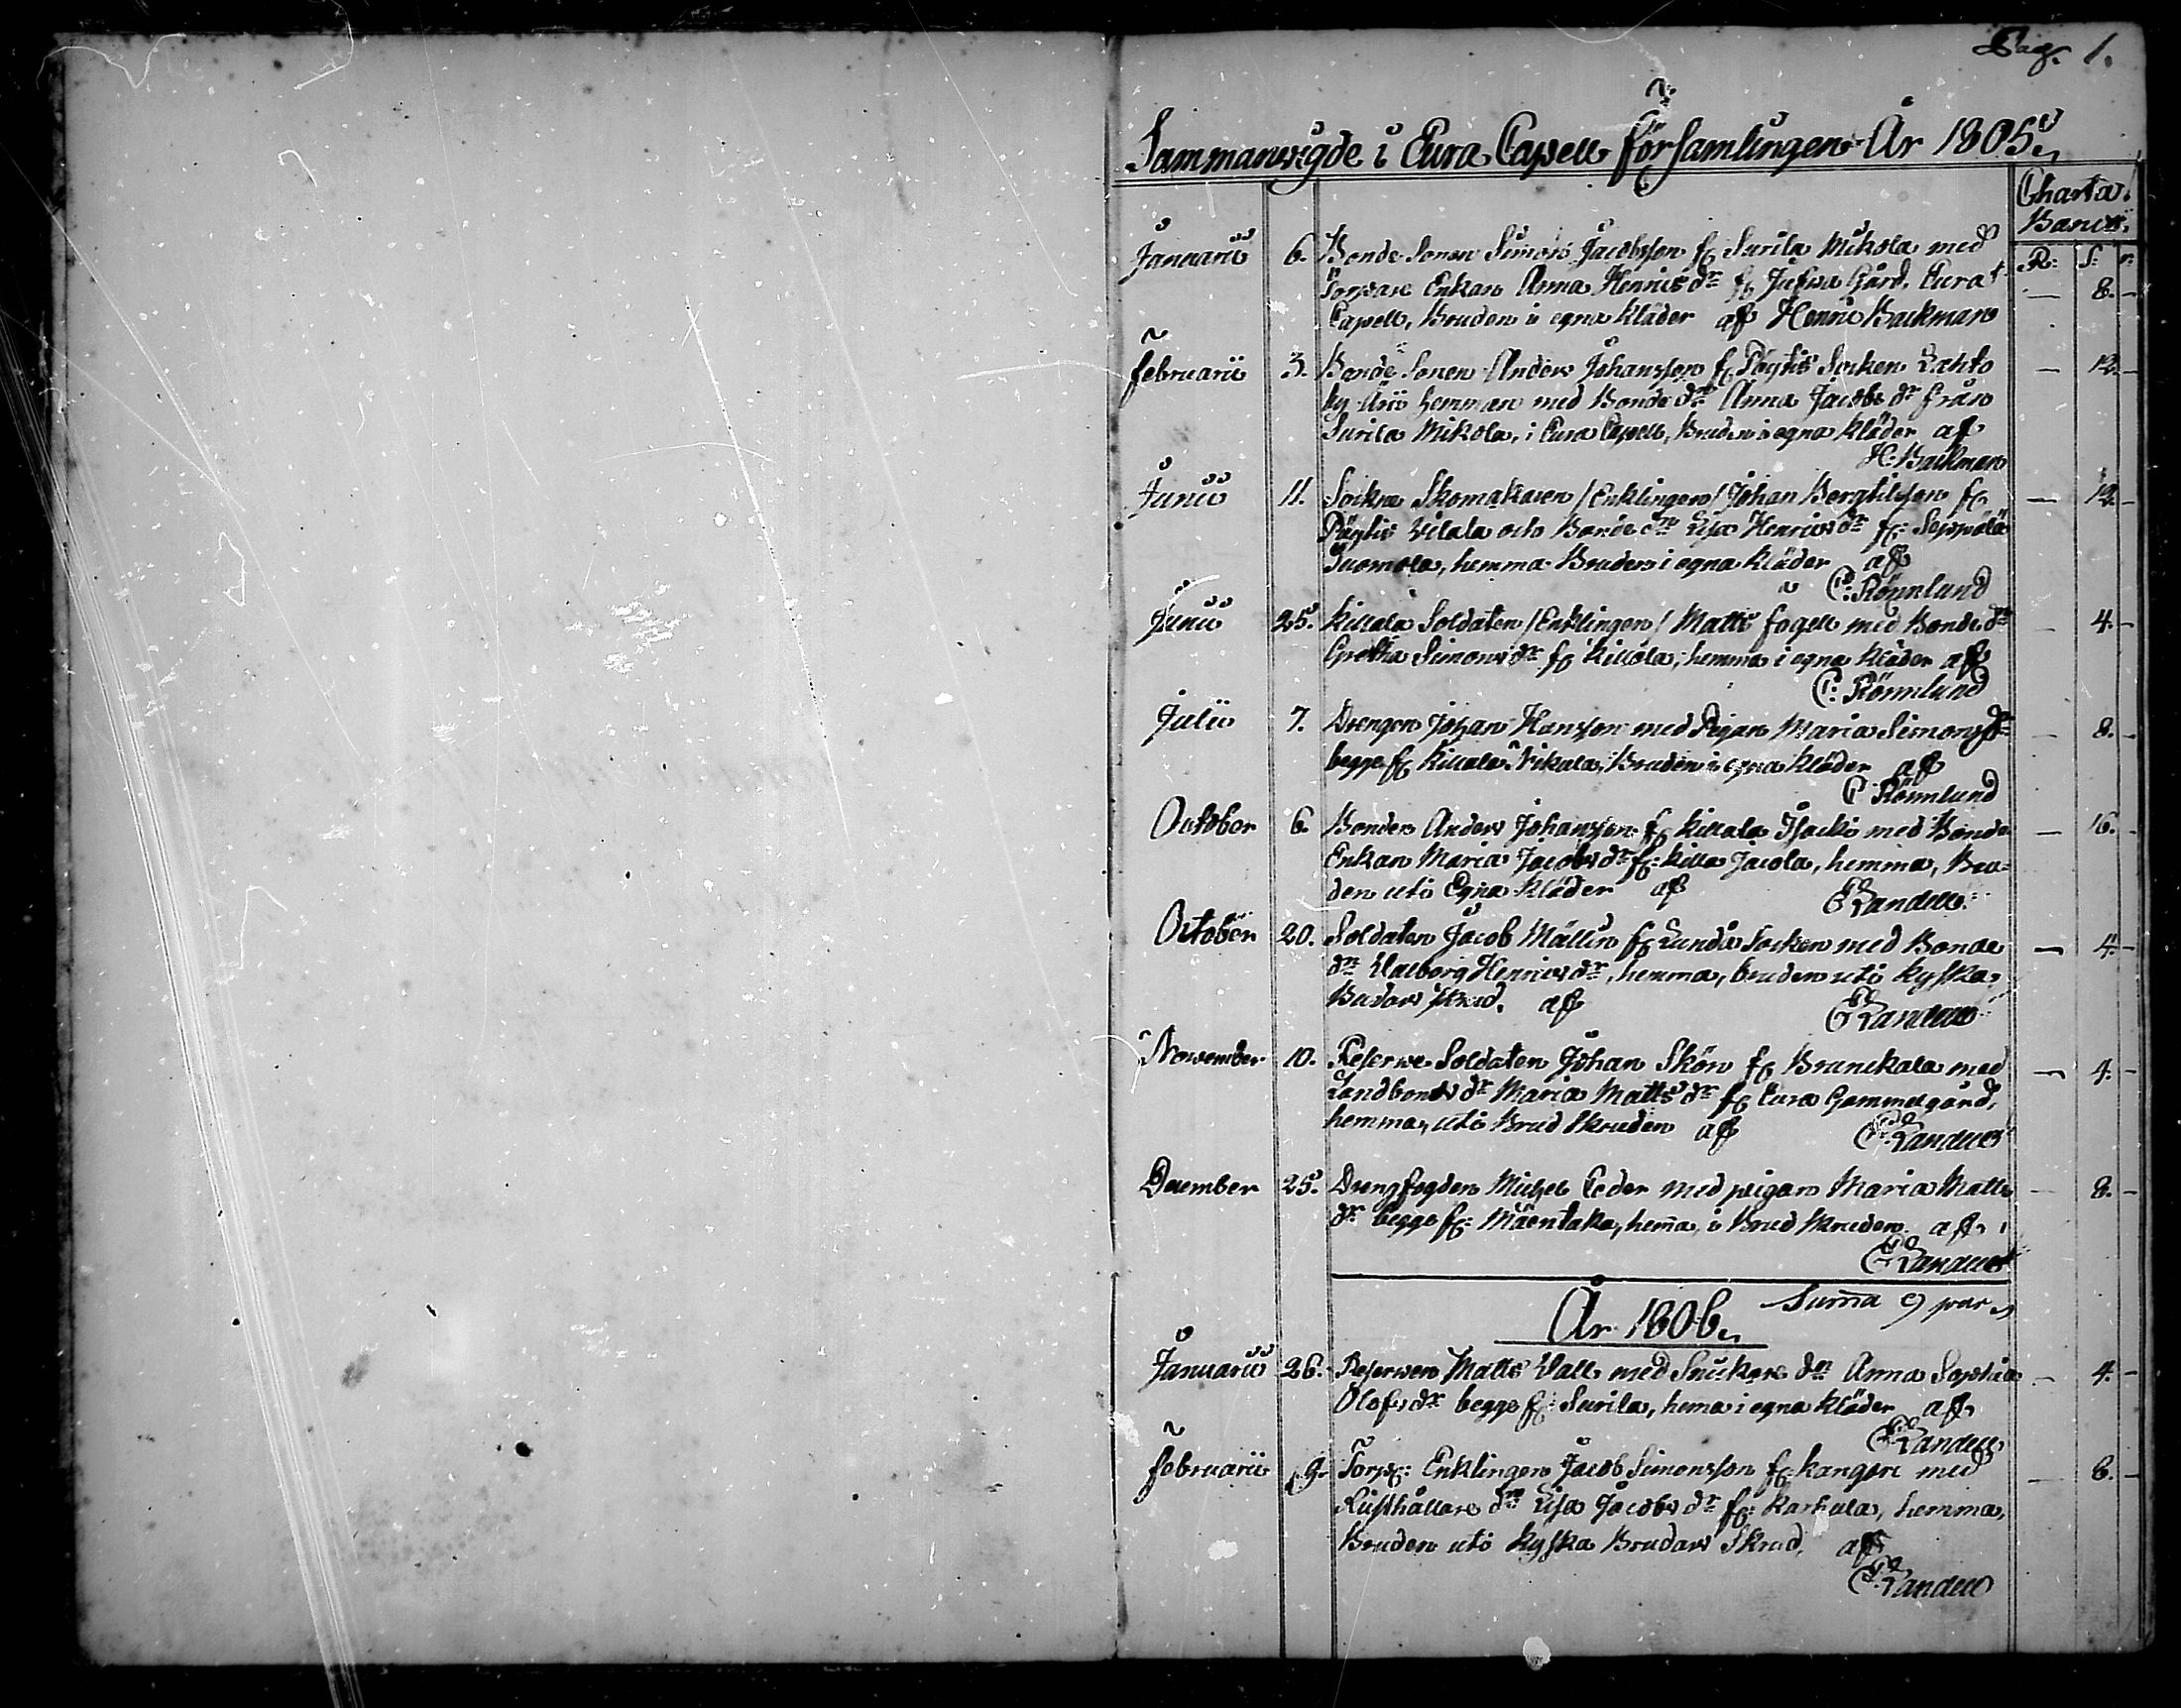 Pag. 1.
Sammanwigde i Eura Capell församlingen År 1805.
Charta
Banco.
R: S: r:
Januarii 6. Bonde Sonen Simon Jacobsson fr Surila Mikola med
Enkan Anna Henrics dr fr Gård, Eura — 8. —
Capell, Bruden i egna kläder af Henric Backman
Februarii 3. Bonde Sonen Anders Johansson fr Pöytis Socken Lahto — 12. —
by hemman med Bonde dr Anna Jacobs dr från
Surila Mikola, i Eura Capell, Bruden i egna kläder af
H: Backman
Junii 11. Sockne Skomakaren /Enklingen/ Johan fr — 12. —
Pöytis och Bonde dn Lisa Henrics dr fr: Seppälä
Tuomola, hemma Bruden i egna kläder af
C: Rönnlund
Junii 25. Killala Soldaten /Enklingen/ Matts Fogell med Bonde dn — 4. —
Gretha Simons dr fr Killala, hemma i egna kläder af
C: Rönnlund
Julii 7. Drengen Johan Hansson med Pigan Maria Simons dr — 8. —
begge fr Killala Bruden i egna kläder af
C Rönnlund
October 6. Bonden Anders Johansson fr Killala Isacki med Bonde — 16. —
Enkan Maria Jacobs dr fr: Killa Jacola, hemma, Bru-
den uti Egna kläder af Landell
October 20. Soldaten Jacob Mällin fr Lundo Socken med Bonde — 4. —
dn Valborg Henrics dr, hemma, bruden uti kyska
Brudars skrud. af Landell
November 10. Reserve Soldaten Johan Skön fr Brunckala med — 4. —
Landbonde dr Maria Matts dr fr Eura Gammelgård,
hemma, uti Brud Skruden af Landell
December 25. Drengfogden Michel Ceder med pigan Maria Matts — 8. —
dr begge fr: Mäentaka, hem̄a, i Brud skruden. af
Landell
Sum̄a 9 par
År 1806.
Januarii 26. Reserven Matts Vall med dn Anna Sophia — 4. —
Olofs dr begge fr: Surila, hema i egna kläder af
Landell
Februarii 9. Torp: Enklingen Jacob Simonsson fr: Kangare med — 8. —
Rusthållare dn Lisa Jacobs dr fr: Karhula, hemma,
Bruden uti kyska Brudars Skrud, af
Landell